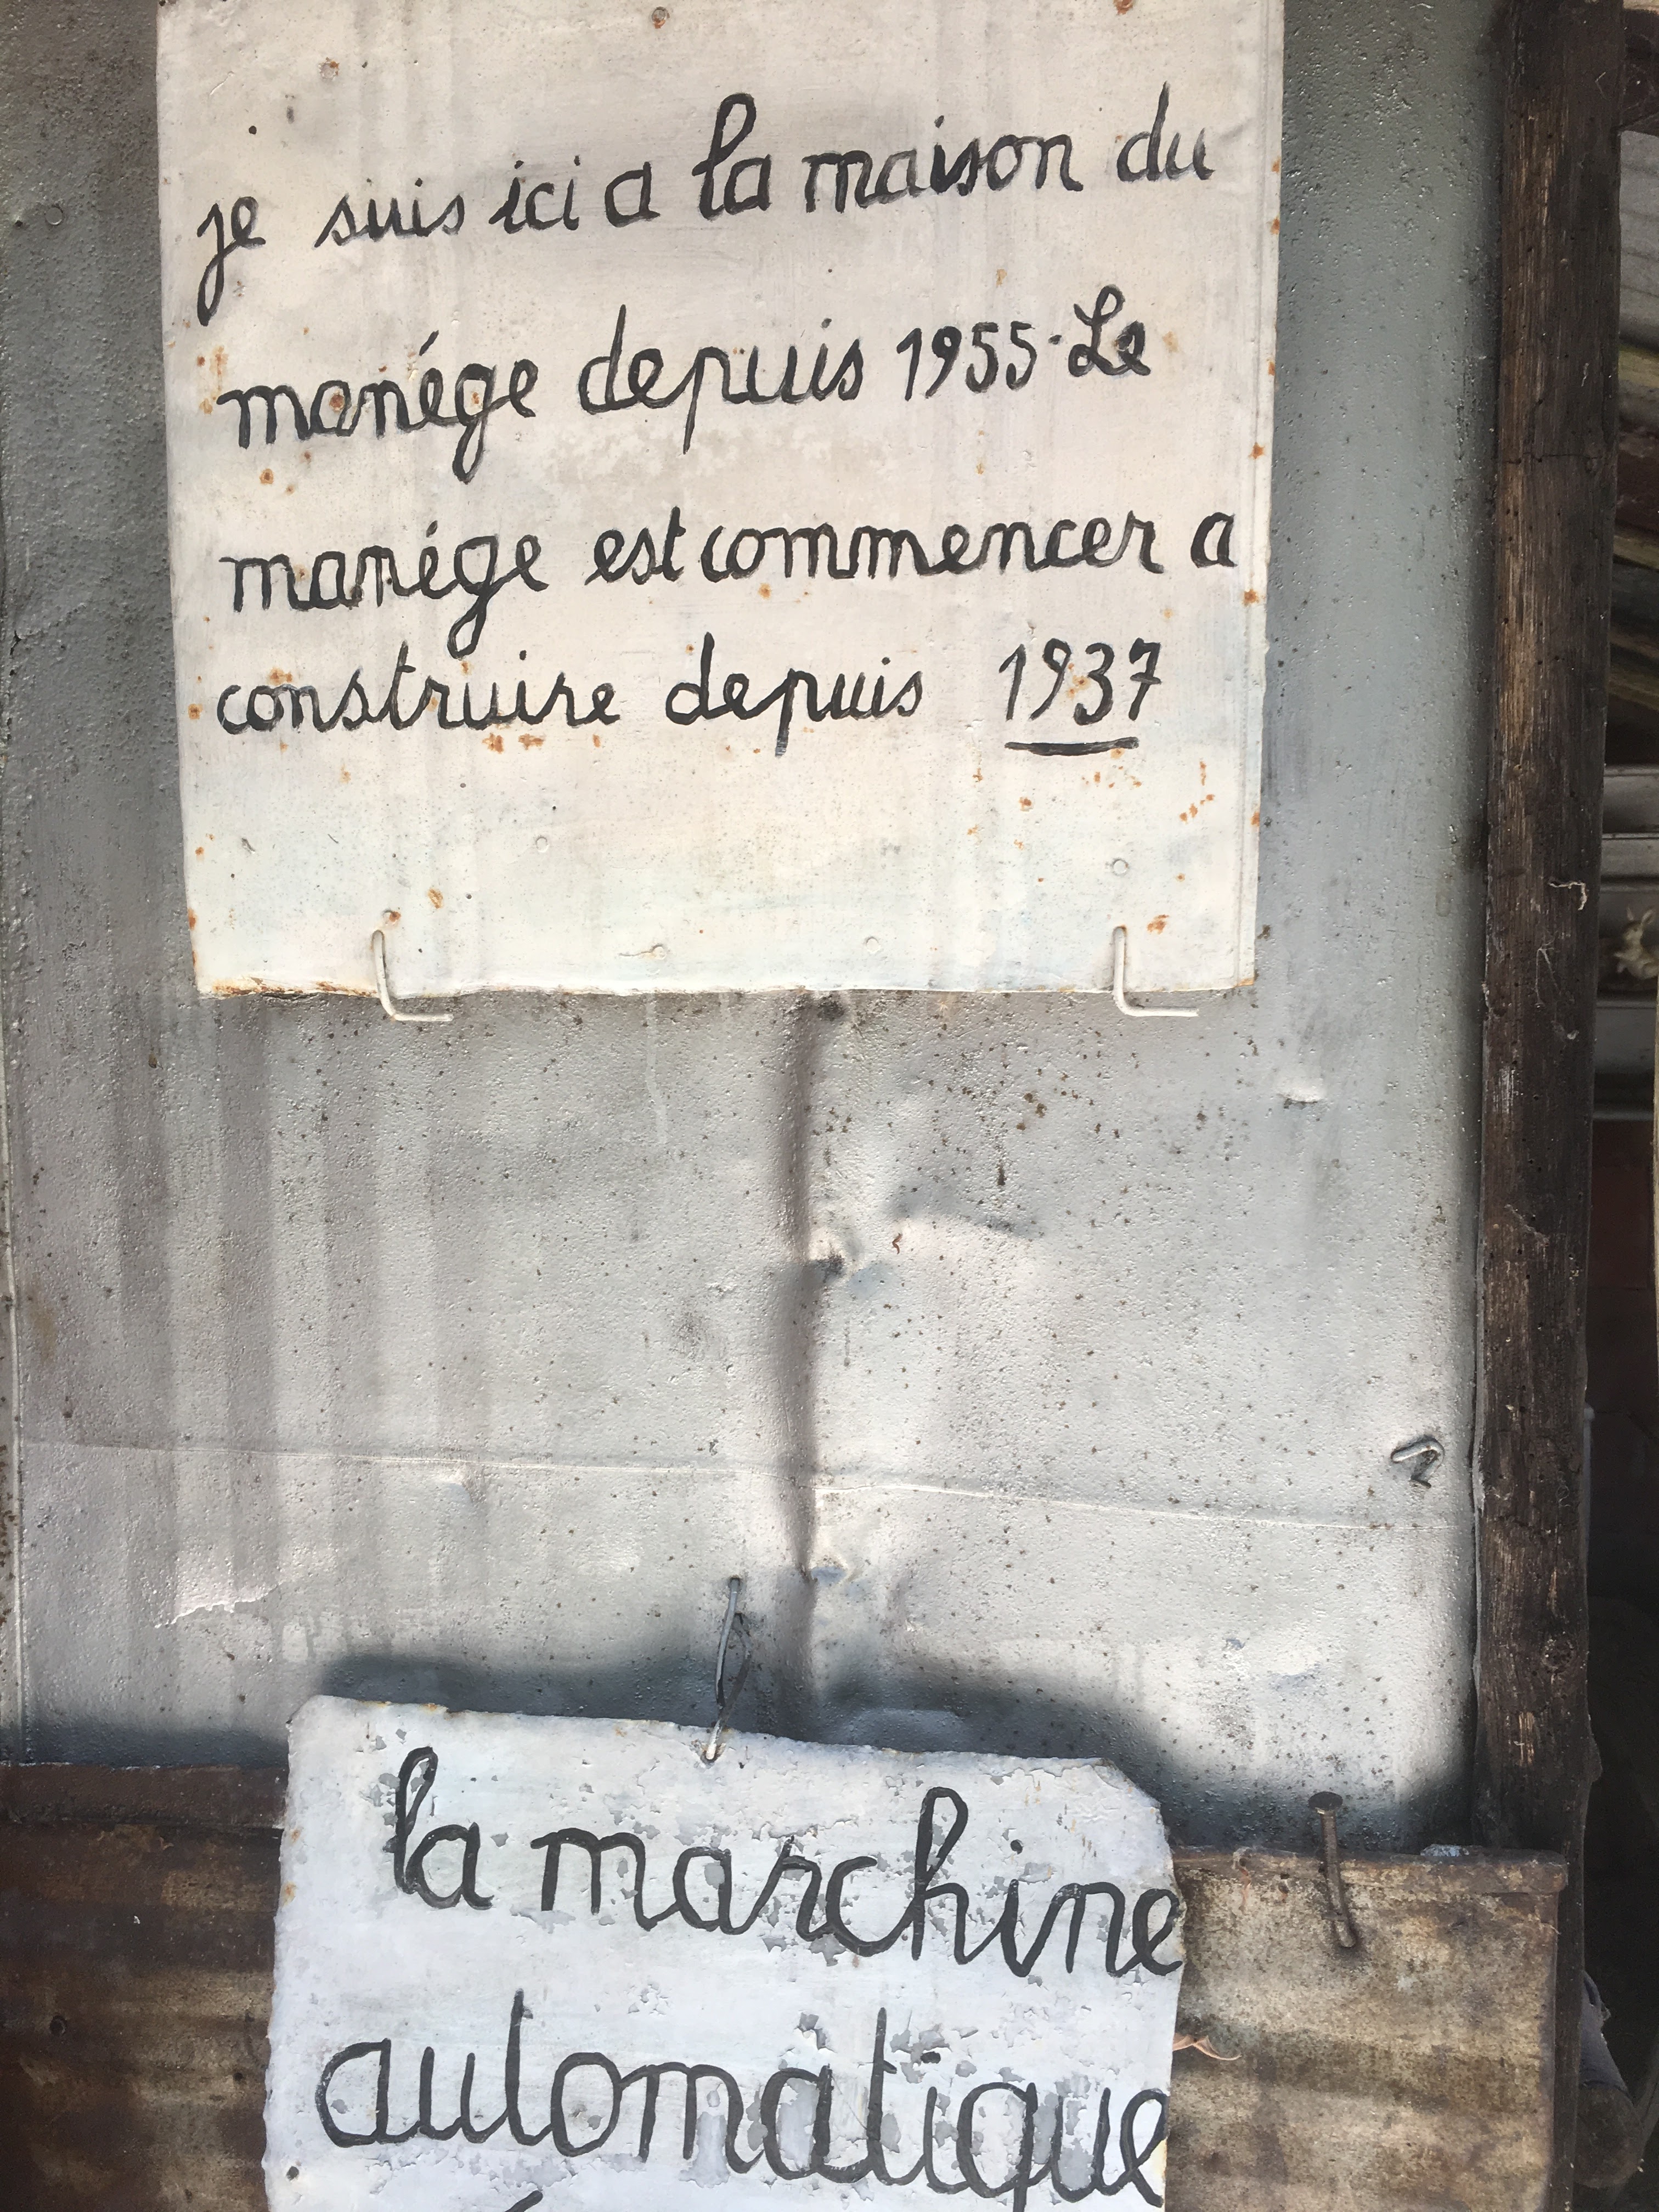 je suis ici a la maison du
manége depuis 1955. Le
manége est commencer a
construire depuis 1937
la marchine
automatique